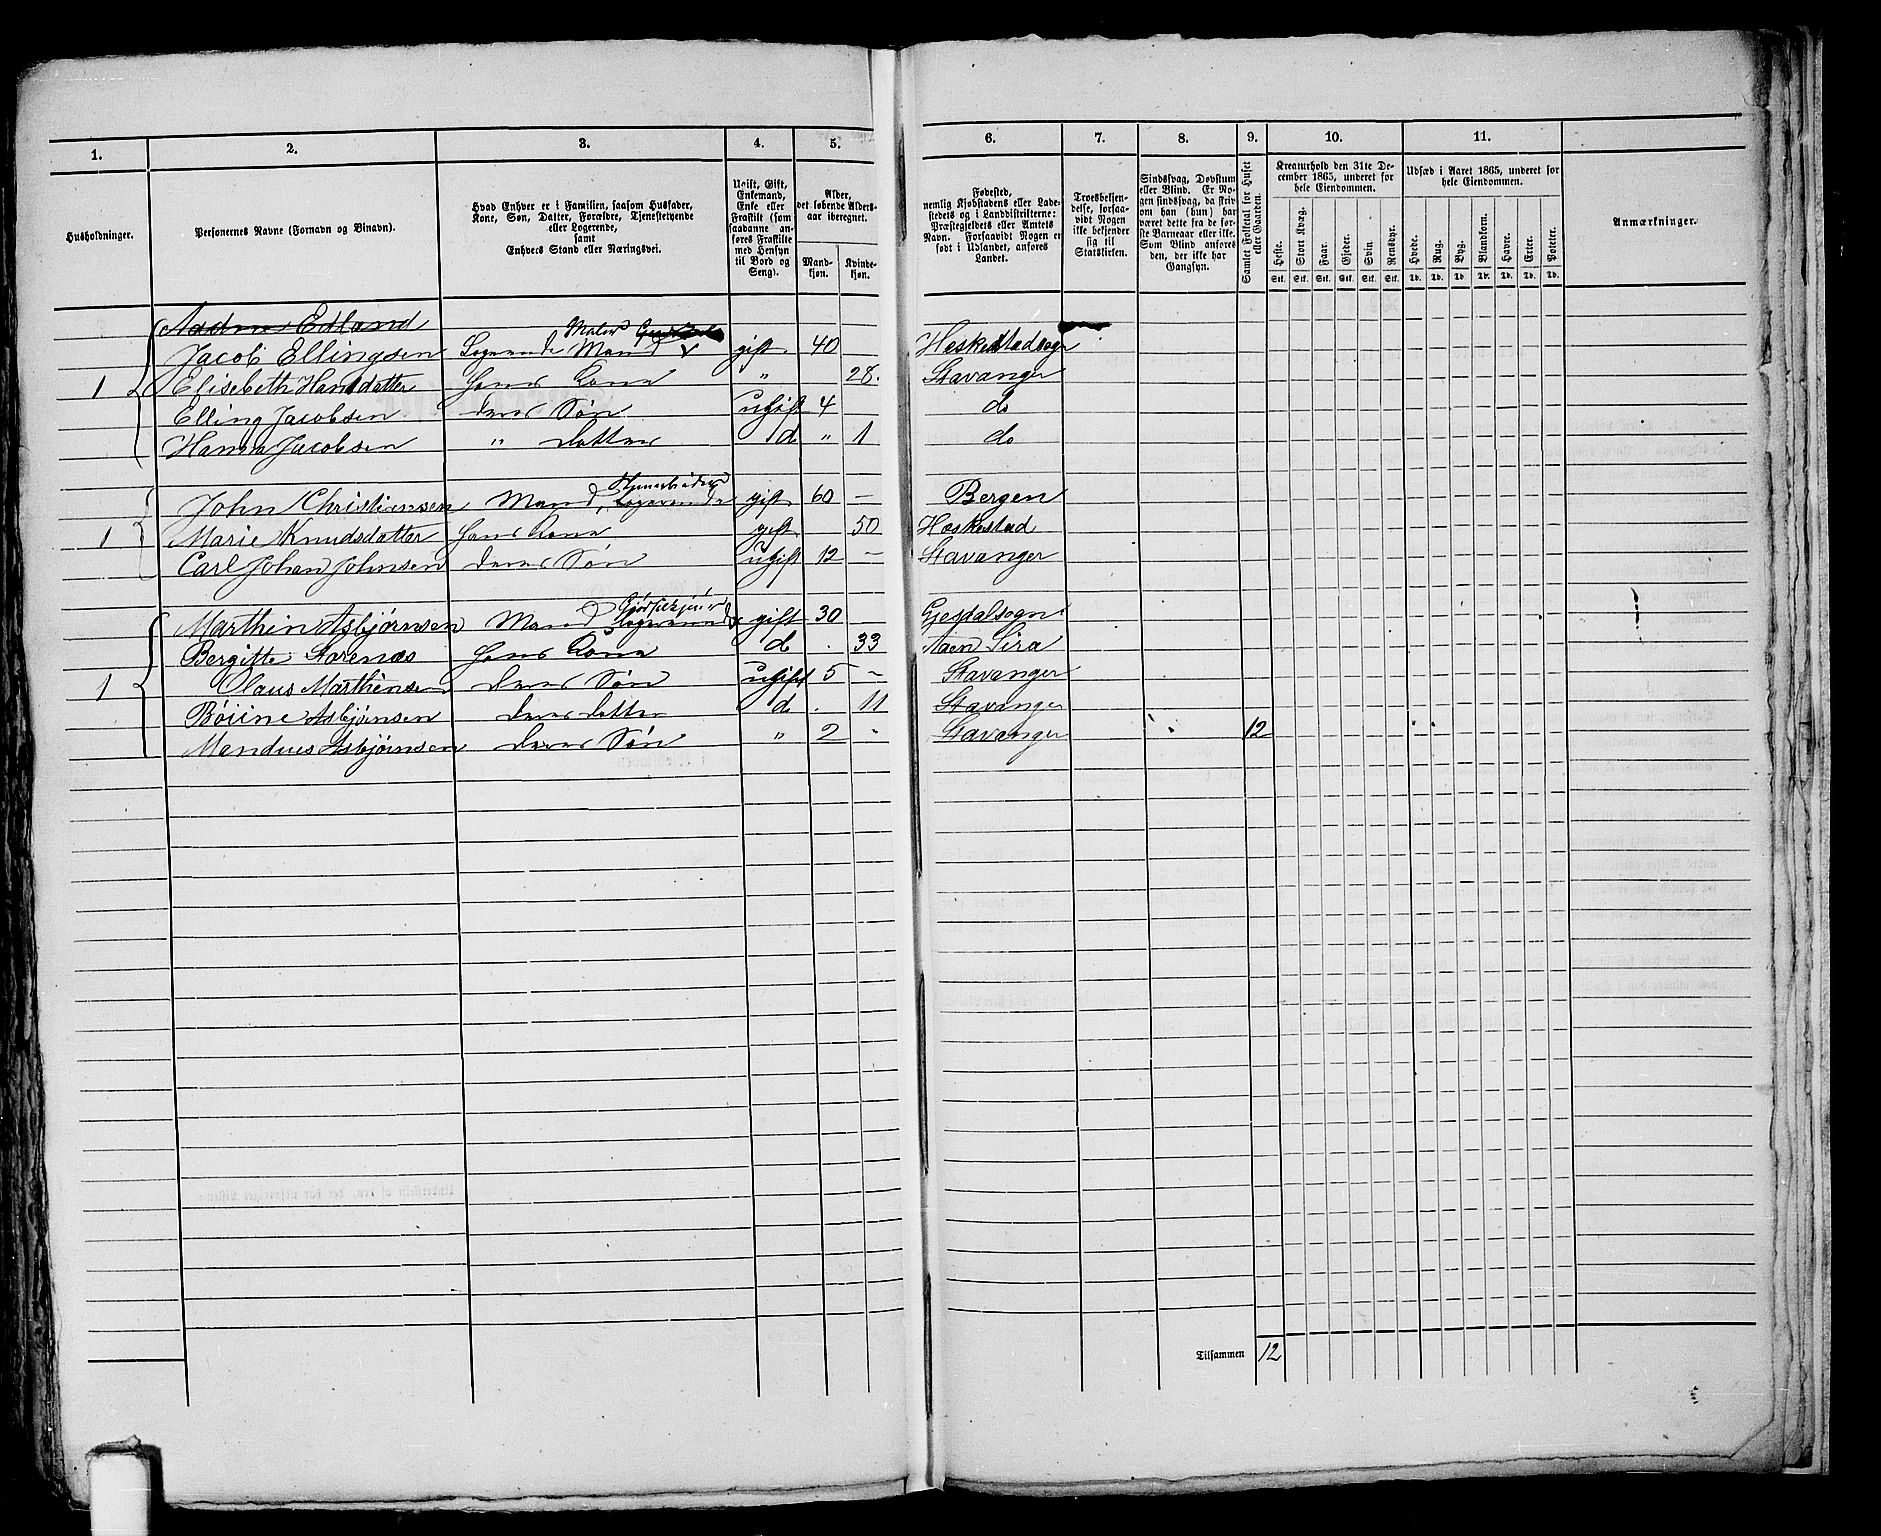 1. 2. 3. 4. 5. 6. 7. 8. 9. 10. 11.
Husholdninger.
Personernes Navne (Fornavn og Binavn).
Hvad Enhver er i Familien, saasom Husfader,
Kone, Søn, Datter, Forældre, Tjenestetyende
eller Logerende,
samt
Enhvers Stand eller Næringsvei.
Ugift, Gift,
Enkemand,
Enke eller
Fraskilt (som
saadanne an-
føres Fraskilte
med Hensyn
til Bord og
Seng).
Alder,
det løbende Alders-
aar iberegnet.
Mand-
kjøn.
Kvinde-
kjøn.
Fødested,
nemlig Kjøbstadens eller Lade-
stedets og i Landdistrikterne:
Præstegjeldets eller Amtets
Navn. Forsaavidt Nogen er
født i Udlandet, anføres
Landet.
Troesbekjen-
delse, forsaa-
vidt Nogen
ikke bekjender
sig til
Statskirken.
Sindssvag, Døvstum
eller Blind. Er No-
gen sindssvag, da skriv
om han (hun) har
været dette fra de før-
ste Barneaar eller ikke.
Som Blind anføres
den, der ikke har
Gangsyn.
Samlet Folketal for Huset
eller Gaarden.
Kreaturhold den 31te De-
cember 1865, underet for
hele Eiendommen.
Heste. Stort Kvæg. Faar. Gjeder. Svin. Rensdyr.
Stk. Stk. Stk. Stk. Stk. Stk.
Udsæd i Aaret 1865, underet for
hele Eiendommen.
Hvede. Rug. Byg. Blandkorn. Havre. Erter. Poteter.
Td. Td. Td. Td. Td. Td. Td.
Anmærkninger.
Aadne Edland
Maler
Jacob Ellingsen Logerende Mand gift 40 Heskestadsogn
1 Elisebeth Hansdatter Hans Kone " 28. Stavanger
Elling Jacobsen deres Søn ugift 4 do
Hanna Jacobsen " Datter d " 1 do
John Christiansen Mand, Logerende gift 60 — Bergen
1 Marie Knudsdatter Hans Kone gift 50 Heskestad
Carl Johan Johnsen deres Søn ugift 12 — Stavanger
Marthin Asbjørnsen Mand Logerende gift 30 Gjesdalsogn
Bergitte Hans Kone d . 33 Aaen Sira
1 Olaus Marthinsen deres Søn ugift 5 — Stavanger
Asbjørnsen deres datter d . 11 Stavanger
Mandius Asbjørnsen deres Søn " 2 " Stavanger 12
Tilsammen 12